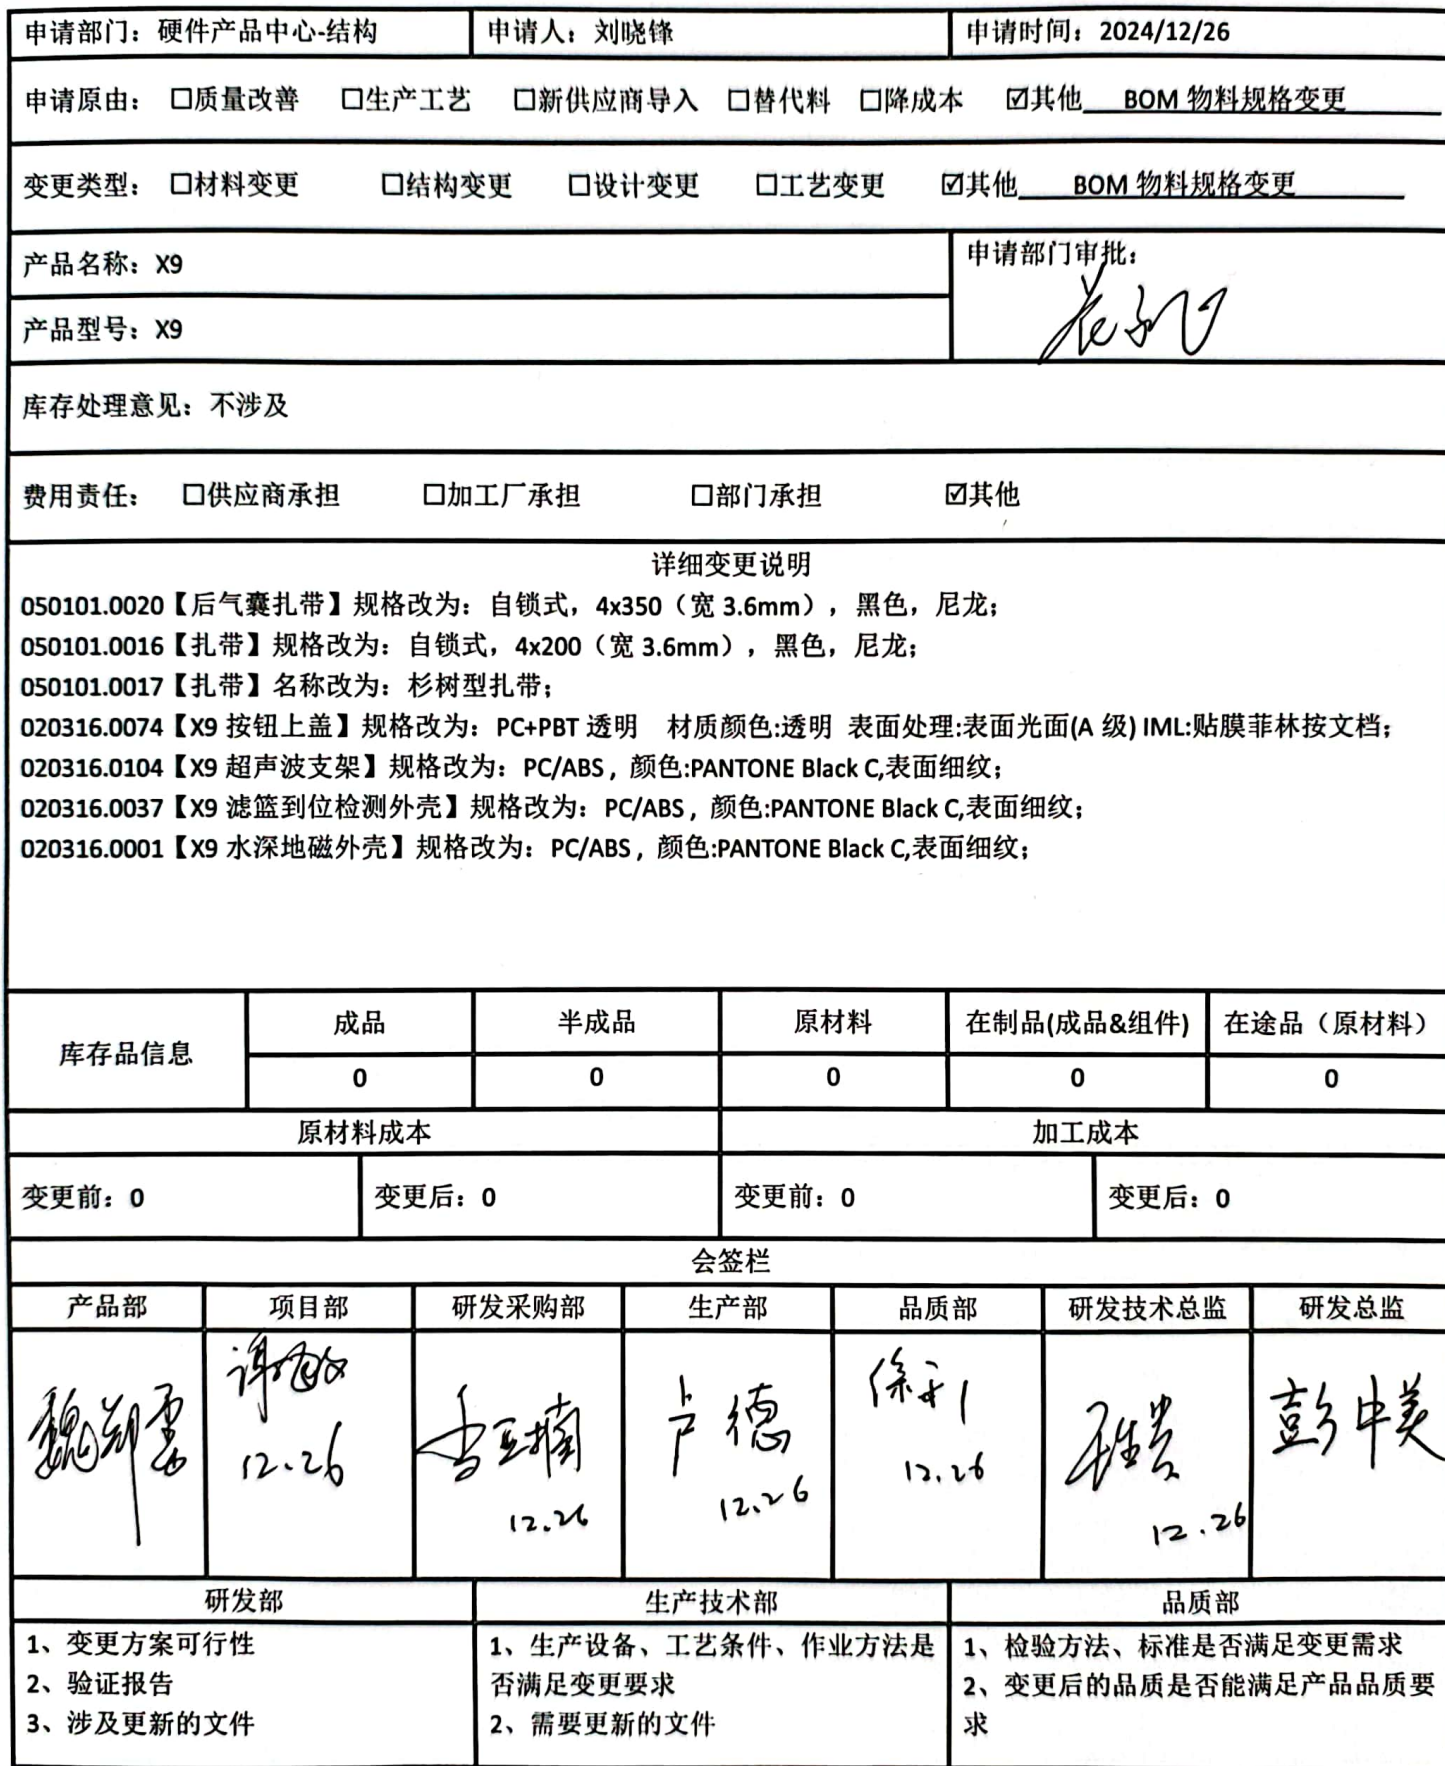 申请部门：硬件产品中心-结构 申请人：刘晓锋 申请时间：2024/12/26
申请原由： □质量改善 □生产工艺 □新供应商导入 □替代料 □降成本 ☑其他 BOM 物料规格变更
变更类型： □材料变更 □结构变更 □设计变更 □工艺变更 ☑其他 BOM 物料规格变更
产品名称：X9
申请部门审批：
产品型号：X9
库存处理意见：不涉及
费用责任： □供应商承担 □加工厂承担 □部门承担 ☑其他
详细变更说明
050101.0020【后气囊扎带】规格改为：自锁式，4x350（宽 3.6mm），黑色，尼龙；
050101.0016【扎带】规格改为：自锁式，4x200（宽 3.6mm），黑色，尼龙；
050101.0017【扎带】名称改为：杉树型扎带；
020316.0074【X9 按钮上盖】规格改为：PC+PBT 透明 材质颜色:透明 表面处理:表面光面(A 级) IML:贴膜菲林按文档；
020316.0104【X9 超声波支架】规格改为：PC/ABS , 颜色:PANTONE Black C,表面细纹；
020316.0037【X9 滤篮到位检测外壳】规格改为：PC/ABS , 颜色:PANTONE Black C,表面细纹；
020316.0001【X9 水深地磁外壳】规格改为：PC/ABS , 颜色:PANTONE Black C,表面细纹；
库存品信息 成品 半成品 原材料 在制品(成品&组件) 在途品（原材料）
0 0 0 0 0
原材料成本 加工成本
变更前：0 变更后：0 变更前：0 变更后：0
会签栏
产品部 项目部 研发采购部 生产部 品质部 研发技术总监 研发总监
卢德 彭中美
12.26 12.26 12.26 12.26 12.26
研发部 生产技术部 品质部
1、变更方案可行性 1、生产设备、工艺条件、作业方法是 1、检验方法、标准是否满足变更需求
2、验证报告 否满足变更要求 2、变更后的品质是否能满足产品品质要
3、涉及更新的文件 2、需要更新的文件 求